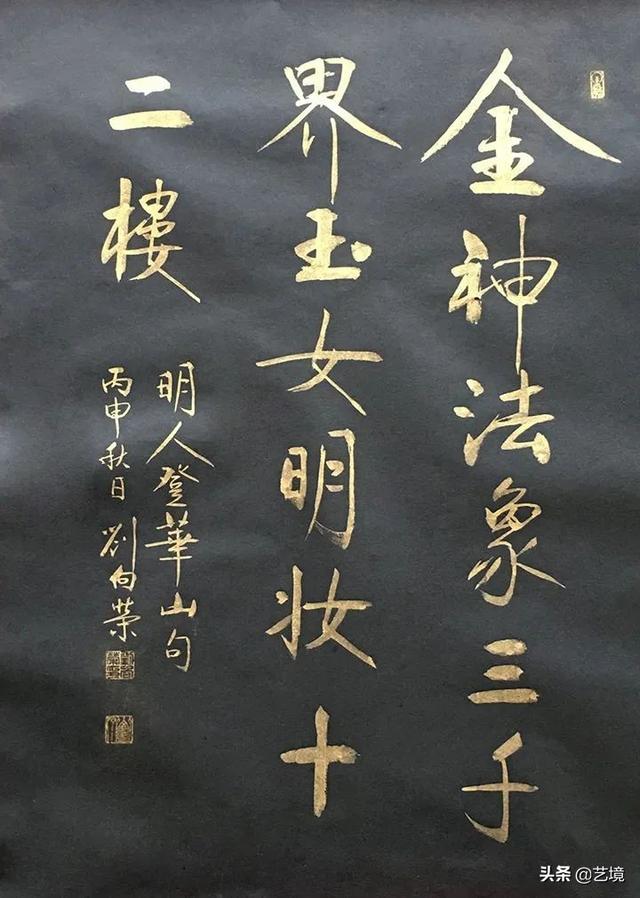 金神法象三千
界玉女明妆十
二樓
明人登華山句
丙申秋日 劉向荣
头条 @艺境